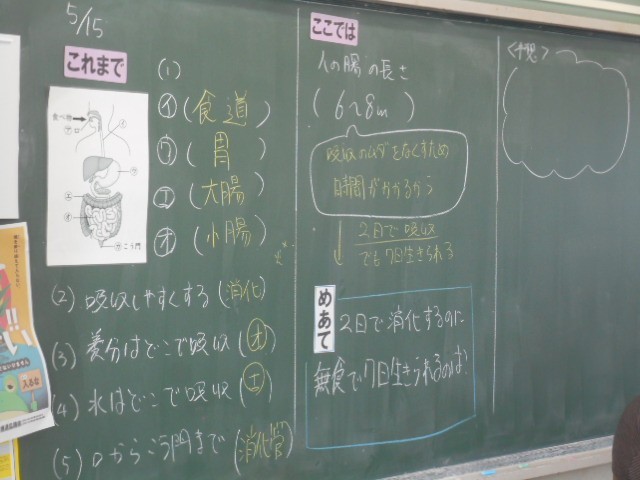 5/15
これまで
(1)
㋑(食道)
㋒(胃)
㋓(大腸)
㋔(小腸)
食べ物
こう門
(2) 吸収しやすくする(消化)
(3) 養分はどこで吸収(オ)
(4) 水はどこで吸収(エ)
(5) 口からこう門まで(消化管)
ここでは
人の腸の長さ
(6~8m)
吸収のムダをなくすため
時間がかかるから
2日で吸収
でも7日生きられる
めあて
2日で消化するのに
無食で7日生きられるのは?
<予想>
入るな